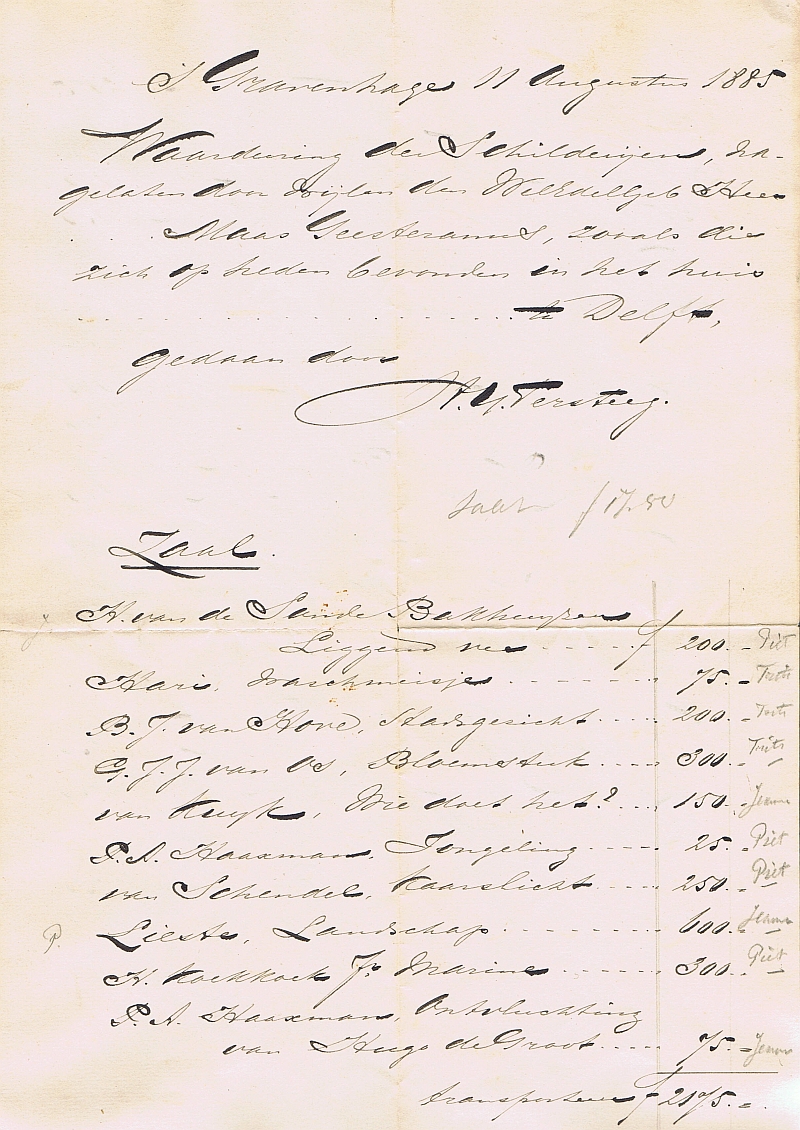 S Gravenhage 11 Augustus 1885
Waardeering der Schilderijen, na-
gelaten door wijlen den WelEdelGeb Heer
. . . . Maas Geesteranus, zooals die
zich op heden bevonden in het huis
. . . . . . . . . . . . . . . te Delft,
gedaan door
H. G. Tersteeg.
f 17.50
Zaal.
x H. van de Sande Bakhuyzen
Liggend vee - - - - - f 200. - Piet
Hari, Waschmeisje - - - - - - - 75. - Trits
B. J. van Hove, Stadsgezicht - - - - 200. - Trits
G. J. J. van Os, Bloemstuk - - - - 300. - Trits
van Kuyk, Wie doet het? - - - 150. - Jeanne
P. A. Haaxman, Jongeling - - - - 25. - Piet
van Schendel, Kaarslicht - - - - 250. - Piet
P. Lieste, Landschap - - - - - - - 600. - Jeanne
H. Koekkoek Jr. Marine - - - - - - 300. - Piet
P. A. Haaxman, Ontvluchting
van Hugo de Groot - - - - - 75. - Jeanne
transporteere f 2175. -